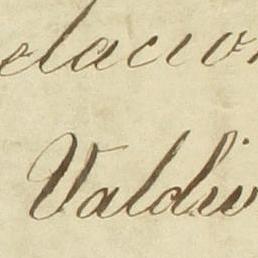 elacion
Valdiv